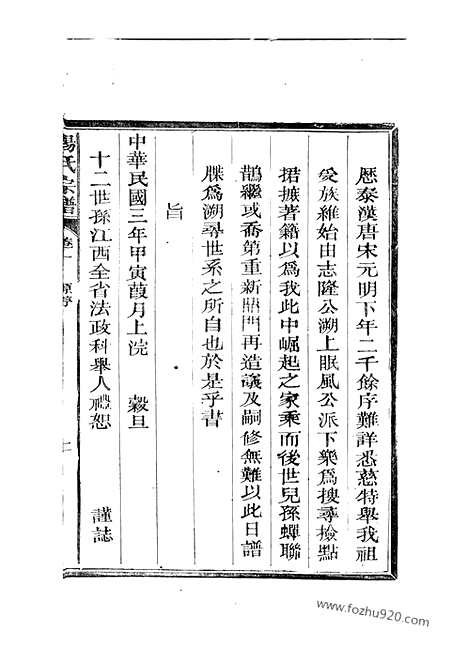 歷秦漢唐宋元明下年二千餘序難詳悉慈特舉我祖
爰族維始由志隆公溯上眠風公派下樂爲搜尋撿點
捃摭著籍以爲我此中崛起之家乘而後世兒孫蟬聯
鵲繼或喬第重新鼎門再造議及嗣修無難以此日譜
牒爲溯尋世系之所自也於是乎書
旨
中華民國三年甲寅葭月上浣 穀旦
十二世孫江西全省法政科舉人禮恕 謹誌
楊氏宗譜 卷一 原序
www.fozhu920.com